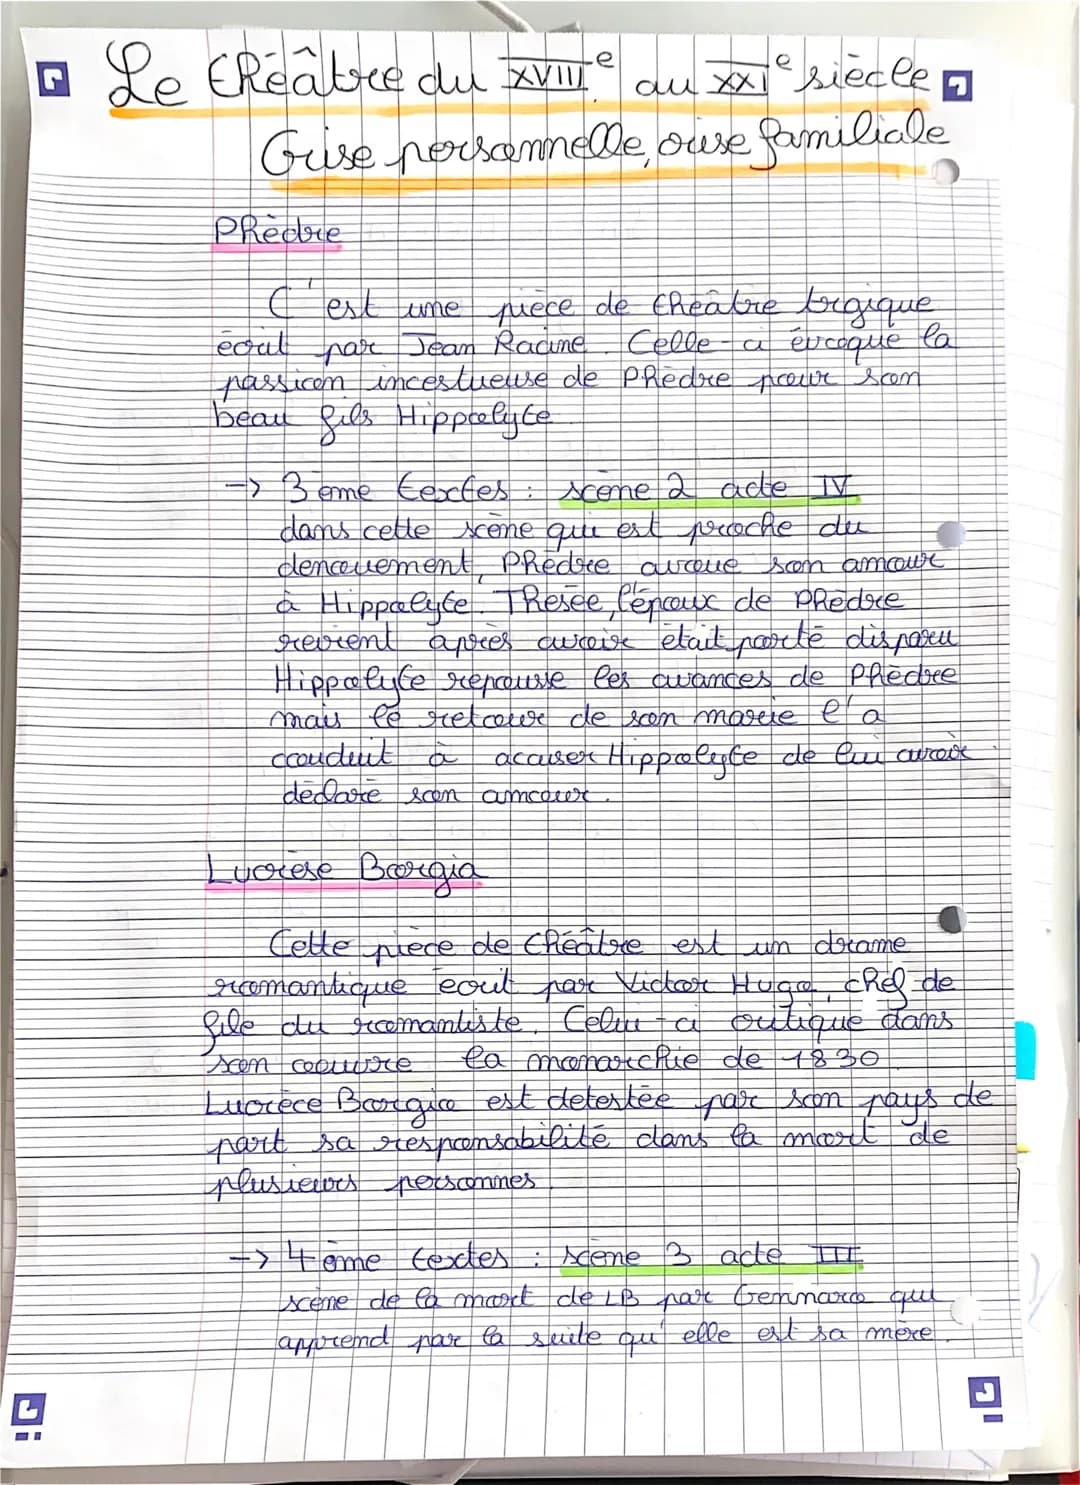 Le théâtre du XVIIIe au XXIe siècle
Crise personnelle, crise familiale
Phèdre
C'est une pièce de théâtre trgique
écrit par Jean Racine. Celle-ci évoque la
passion incestueuse de Phèdre pour son
beau fils Hippolyte
-> 3ème textes : scène 2 acte IV
dans cette scène qui est proche du
denouement, Phèdre avoue son amour
à Hippolyte. Thésée, l'époux de Phèdre
revient après avoir était porté disparu
Hippolyte repousse les avances de Phèdre
mais le retour de son marie l'a
conduit à accuser Hippolyte de lui avoir
déclaré son amour.
Lucrèse Borgia
Cette pièce de théâtre est un drame
romantique écrit par Victor Hugo, chef de
file du romantiste. Celui-ci critique dans
son oeuvre la monarchie de 1830
Lucrèce Borgia est detestée par son pays de
part sa responsabilité dans la mort de
plusieurs personnes.
-> 4ème textes : scène 3 acte III
scène de la mort de LB par Gennaro qui
apprend par la suite qu'elle est sa mère.